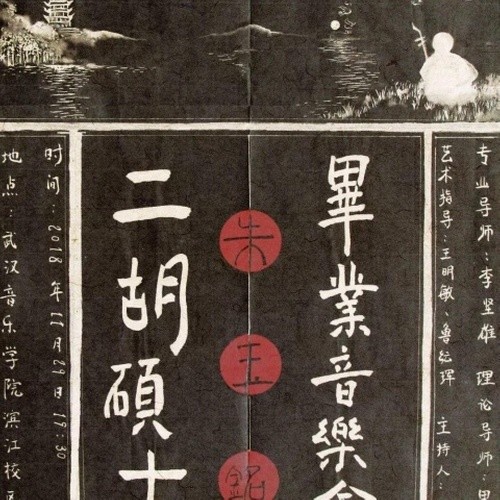 专业导师：李坚雄 理论导师：
艺术指导：王明敏、鲁 主持人：
畢業音樂會
朱玉
二胡碩士
时间：2018年11月29日 19:30
地点：武汉音乐学院滨江校区